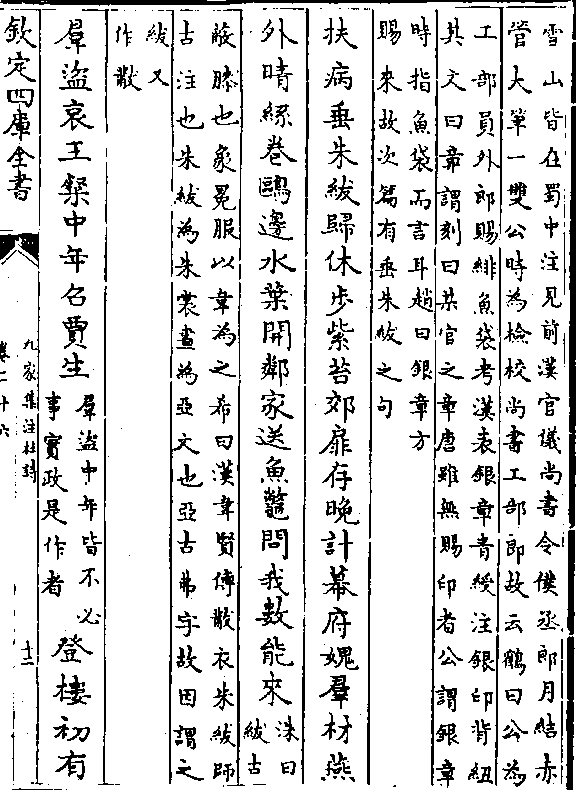 雪山皆在蜀中注見前漢官儀尚書令僕丞郎月給赤
管大筆一雙公時為檢校尚書工部郎故云鶴曰公為
工部員外郎賜緋魚袋考漢表銀章青綬注銀印背紐
其文曰章謂刻曰某官之章唐雖無賜印者公謂銀章
時指魚袋而言耳趙曰銀章方
賜來故次篇有垂朱紱之句
扶病垂朱紱歸休步紫苔郊扉存晚計幕府媿羣材燕
外晴絲卷鷗邊水葉開鄰家送魚鼈問我數能來洙曰紱古
蔽膝也象冕服以韋為之希曰漢韋賢傳黻衣朱紱師
古注也朱紱為朱裳畫為亞文也亞古弗字故因謂之
紱又
作黻
羣盜哀王粲中年召賈生羣盜中年皆不必事實政是作者登樓初有
欽定四庫全書
九家集注杜詩
卷二十六
十二